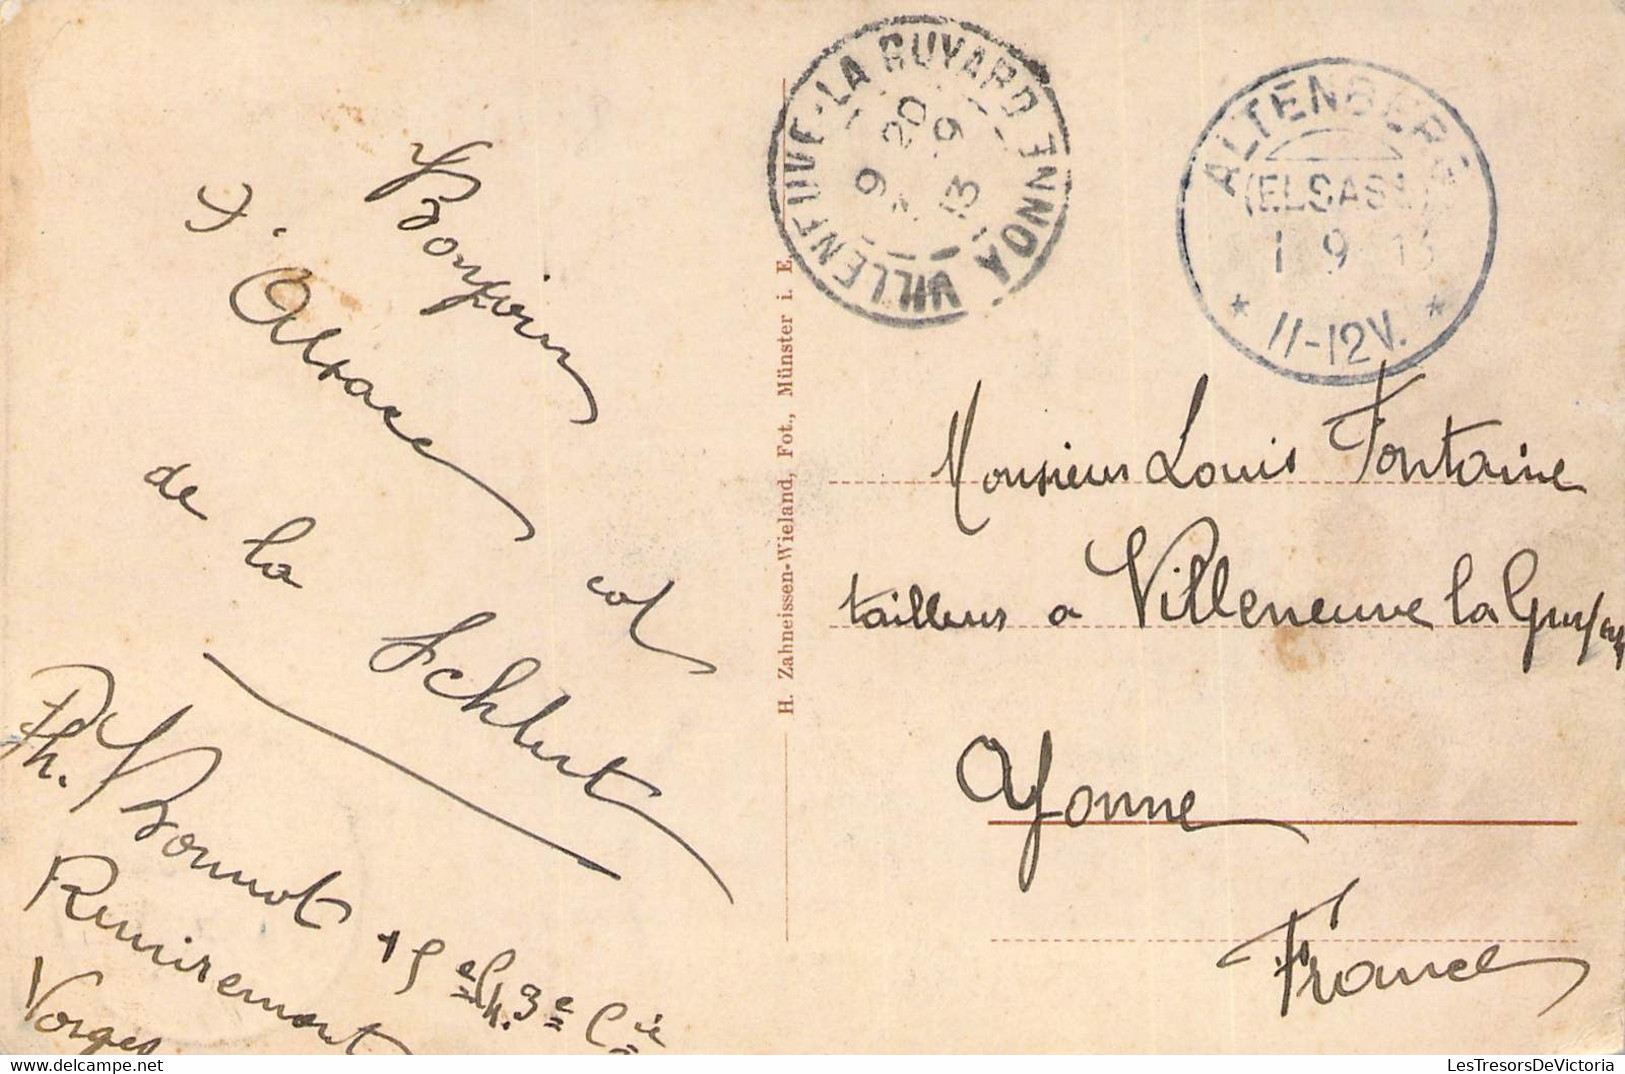 Bonjour
d'Alsace
col
de la Schlucht
Ph. Bonnot
15e Ch. 3e Cie
Remiremont
Vosges
H. Zahneissen-Wieland, Fot., Münster i. E.
VILLENEUVE-LA GUYARD YONNE
9 20
9
13
ALTENBERG
(ELSASS)
1 9 13
11-12V.
Monsieur Louis Fontaine
tailleur a Villeneuve la Guyard
Yonne
France
LesTresorsDeVictoria